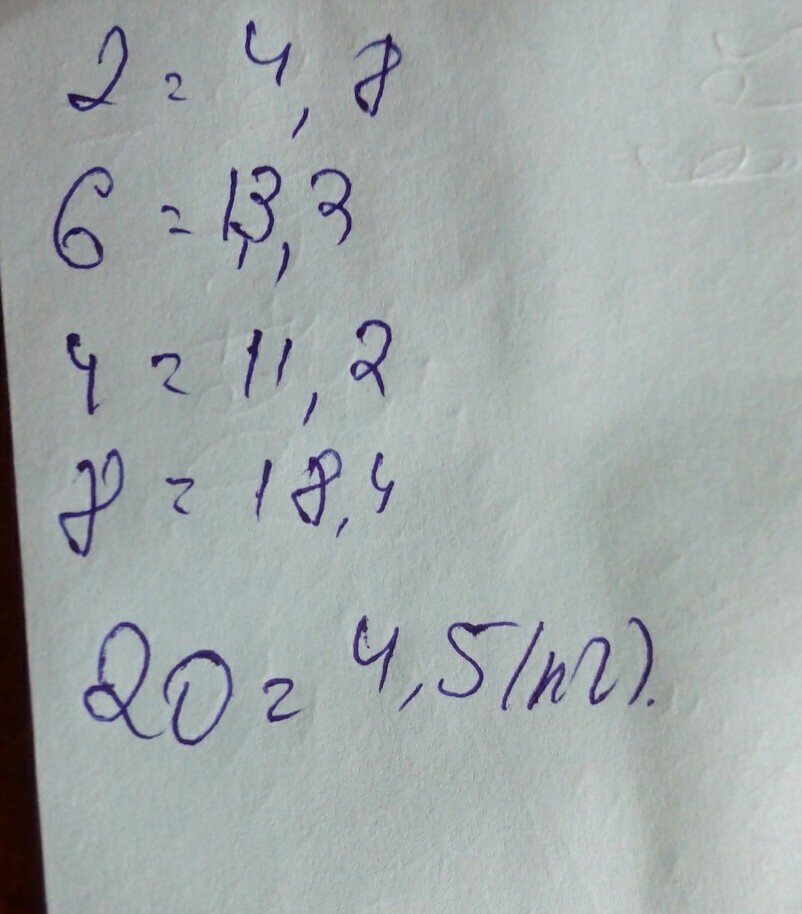 2 = 4,8
6 = 13,3
4 = 11,2
8 = 18,4
20 = 4,5 (п2).